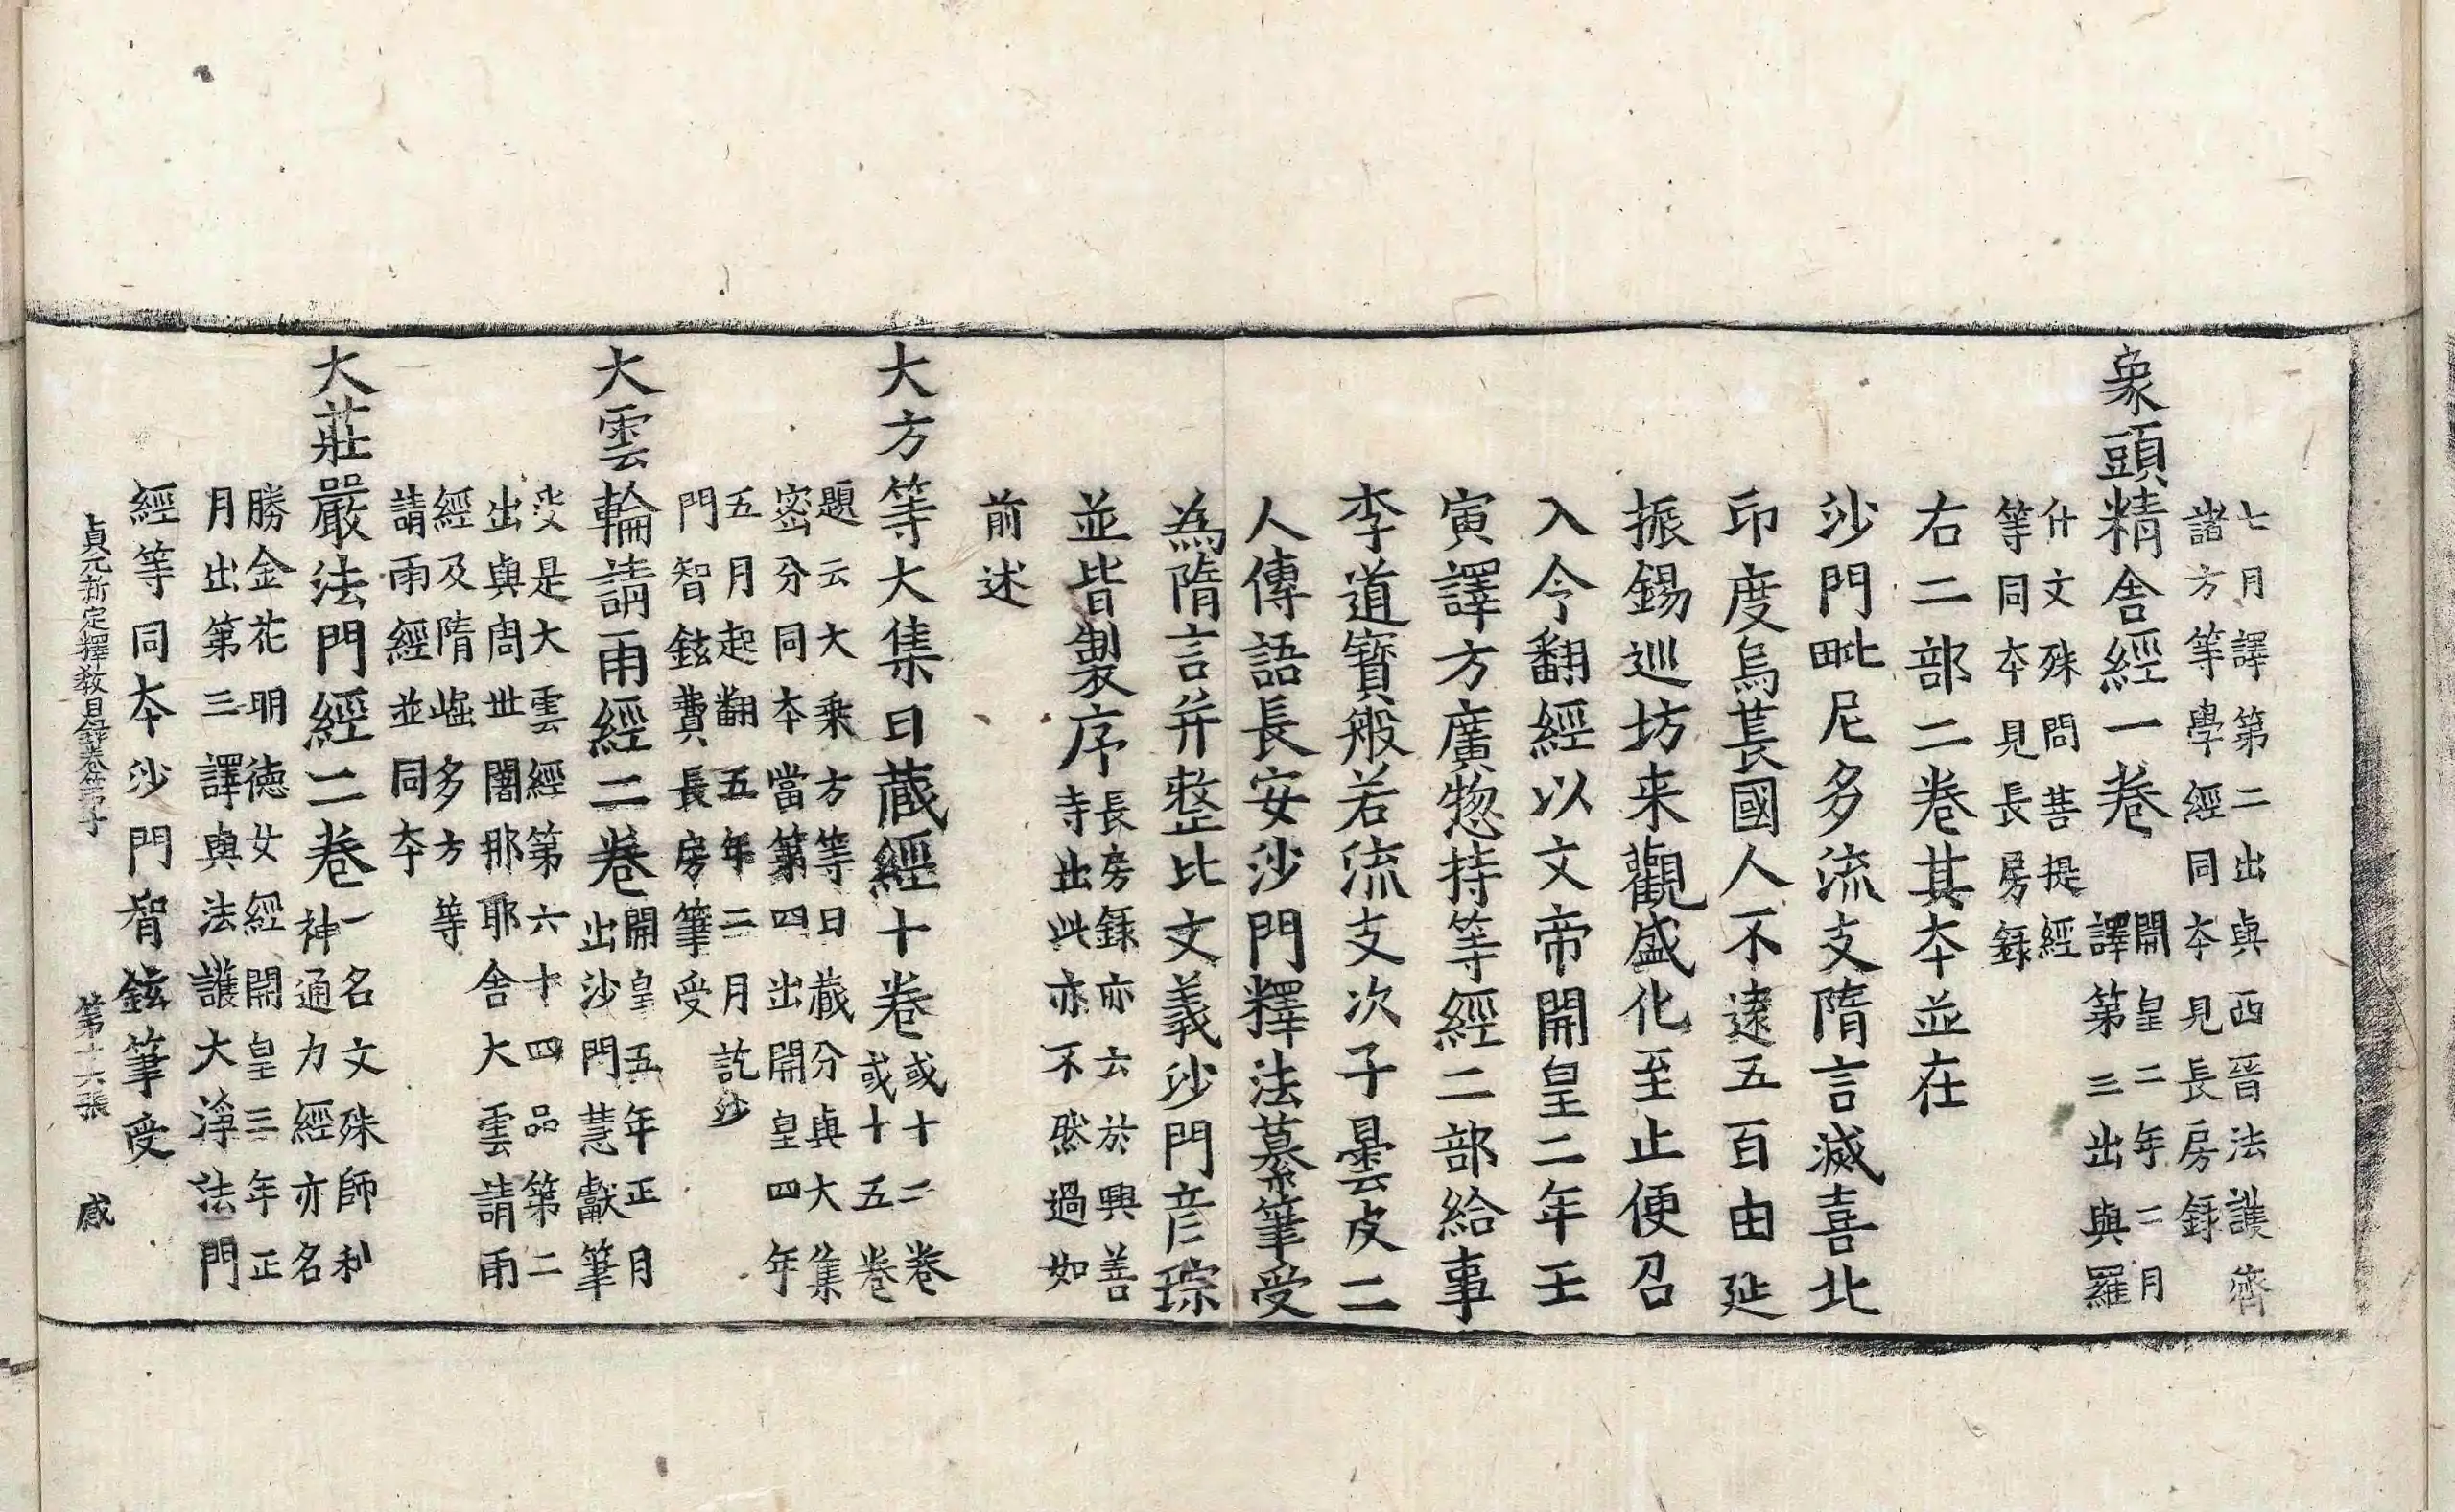 七月譯第二出與西晉法護齊
諸方等學經同本見長房錄
象頭精舍經一卷
開皇二年二月
譯第三出與羅
什文殊問菩提經
等同本見長房錄
右二部二卷其本並在
沙門毗尼多流支隋言滅喜北
印度烏萇國人不遠五百由延
振錫巡坊来觀盛化至止便召
入令翻經以文帝開皇二年壬
寅譯方廣惣持等經二部給事
李道寳般若流支次子曇皮二
人傳語長安沙門釋法纂筆受
為隋言并整比文義沙門彦琮
並皆製序
長房錄亦云於興善
寺出此亦不然過如
前述
大方等大集日蔵經十卷
或十二卷
或十五卷
題云大乗方等日蔵分與大集
密分同本當第四出開皇四年
五月起翻五年二月訖沙
門智鉉費長房筆受
大雲輪請雨經二卷
開皇五年正月
出沙門慧獻筆
受是大雲經第六十四品第二
出與周世闍那耶舍大雲請雨
經及隋崛多方等
請雨經並同本
大莊嚴法門經二卷
一名文殊師利
神通力經亦名
勝金花明德女經開皇三年正
月出第三譯與法護大淨法門
經等同本沙門智鉉筆受
貞元新定釋教目録卷第子 第十六張 感